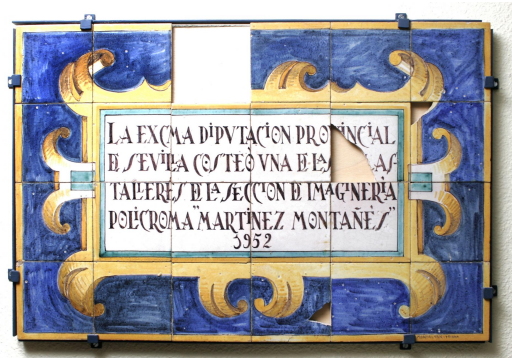 LA EXCMA DIPVTACION PROVINCIAL
DE SEVILLA COSTEÓ VNA DE LAS AS
TALLERES DE LA SECCION DE IMAGINERIA
POLICROMA "MARTINEZ MONTAÑES"
1952